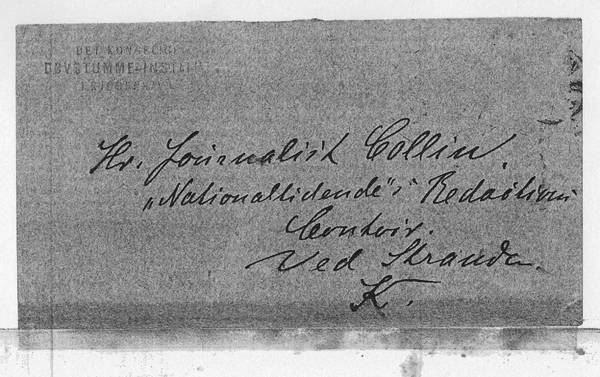 DET KONGELIGE
DØVSTUMME-INSTITUT
I KJØBENHAVN
Hr. Journalist Collin,
„Nationaltidende“s Redactions
Contoir.
Ved Stranden.
K.